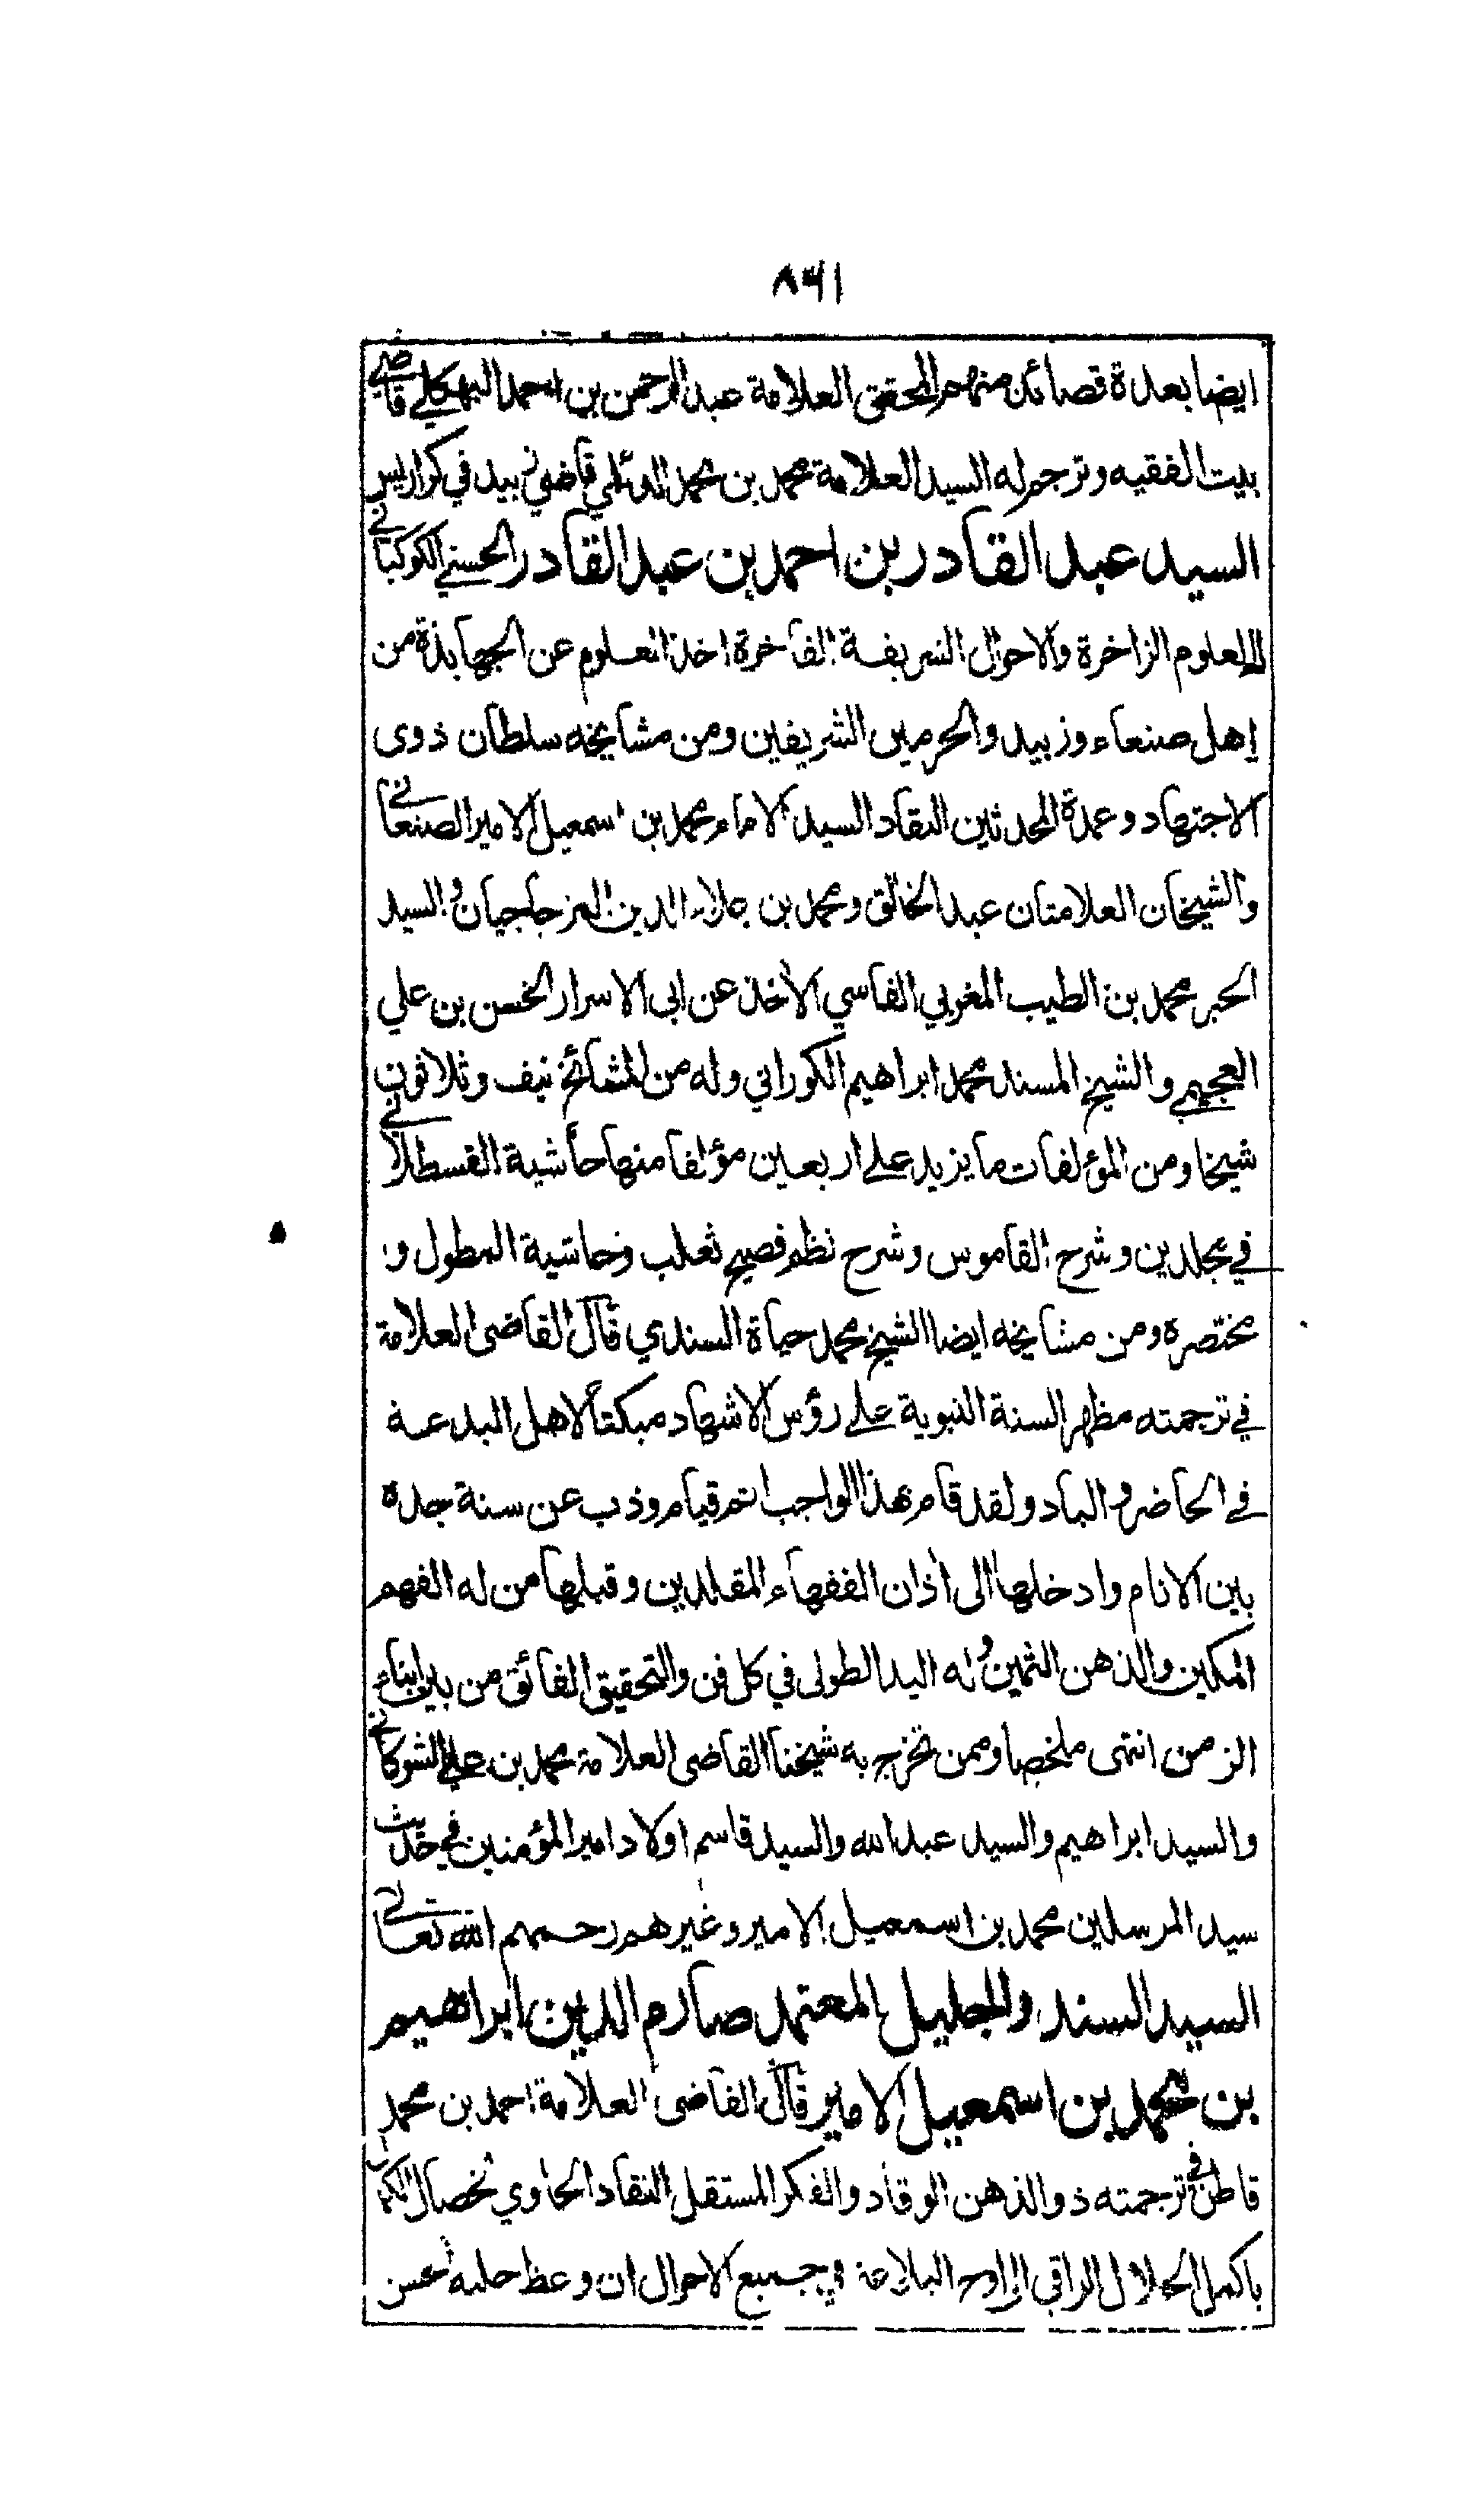 ٨٦١
ايضا بعدة قصائد منهم المحقق العلامة عبد الرحمن بن احمد البهكلي قاضي
بيت الفقيه وترجم له السيد العلامة محمد بن محمد الديلمي قاضي زبيد في كراريس
السيد عبد القادر بن احمد بن عبد القادر الحسني الكوكباني
العلوم الزاخرة والاحوال الشريفة الفاخرة اخذ العلوم عن الجهابذة من
اهل صنعاء وزبيد والحرمين الشريفين ومن مشايخه سلطان ذوى
الاجتهاد وعمدة المحدثين النقاد السيد الامام محمد بن اسمعيل الامير الصنعاني
والشيخان العلامتان عبد الخالق ومحمد بن علاء الدين المزجاجيان والسيد
الحبر محمد بن الطيب المغربي الفاسي الأخذ عن ابى الاسرار الحسن بن علي
العجيمي والشيخ المسند محمد ابراهيم الكوراني وله من المشائخ نيف وثلاثون
شيخا ومن المؤلفات ما يزيد على اربعين مؤلفا منها حاشية القسطلاني
في مجلدين وشرح القاموس وشرح نظم فصيح ثعلب وحاشية المطول و
مختصره ومن مشايخه ايضا الشيخ محمد حياة السندي قال القاضى العلامة
في ترجمته مظهر السنة النبوية على رؤس الاشهاد مبكتاً لاهل البدعة
في الحاضر والباد ولقد قام بهذا الواجب اتم قيام وذب عن سنة جده
بين الانام وادخلها الى أذان الفقهاء المقلدين وقبلها من له الفهم
المكين والذهن الثمين وله اليد الطولى في كل فن والتحقيق الفائق من بين ابناء
الزمن انتهى ملخصا وممن تخرج به شيخنا القاضى العلامة محمد بن علي الشوكاني
والسيد ابراهيم والسيد عبد الله والسيد قاسم اولاد امير المؤمنين في حديث
سيد المرسلين محمد بن اسمعيل الامير وغيرهم رحمهم الله تعالى
السيد السند والجليل المعتمد صارم الدين ابراهيم
بن محمد بن اسمعيل الامير قال القاضى العلامة احمد بن محمد
قاطن في ترجمته ذو الذهن الوقاد والفكر المستقل النقاد الحاوي لخصال الكمال
باكمل الخلال الراقي البلاغة في جميع الاحوال ان وعظ حليه أحسن